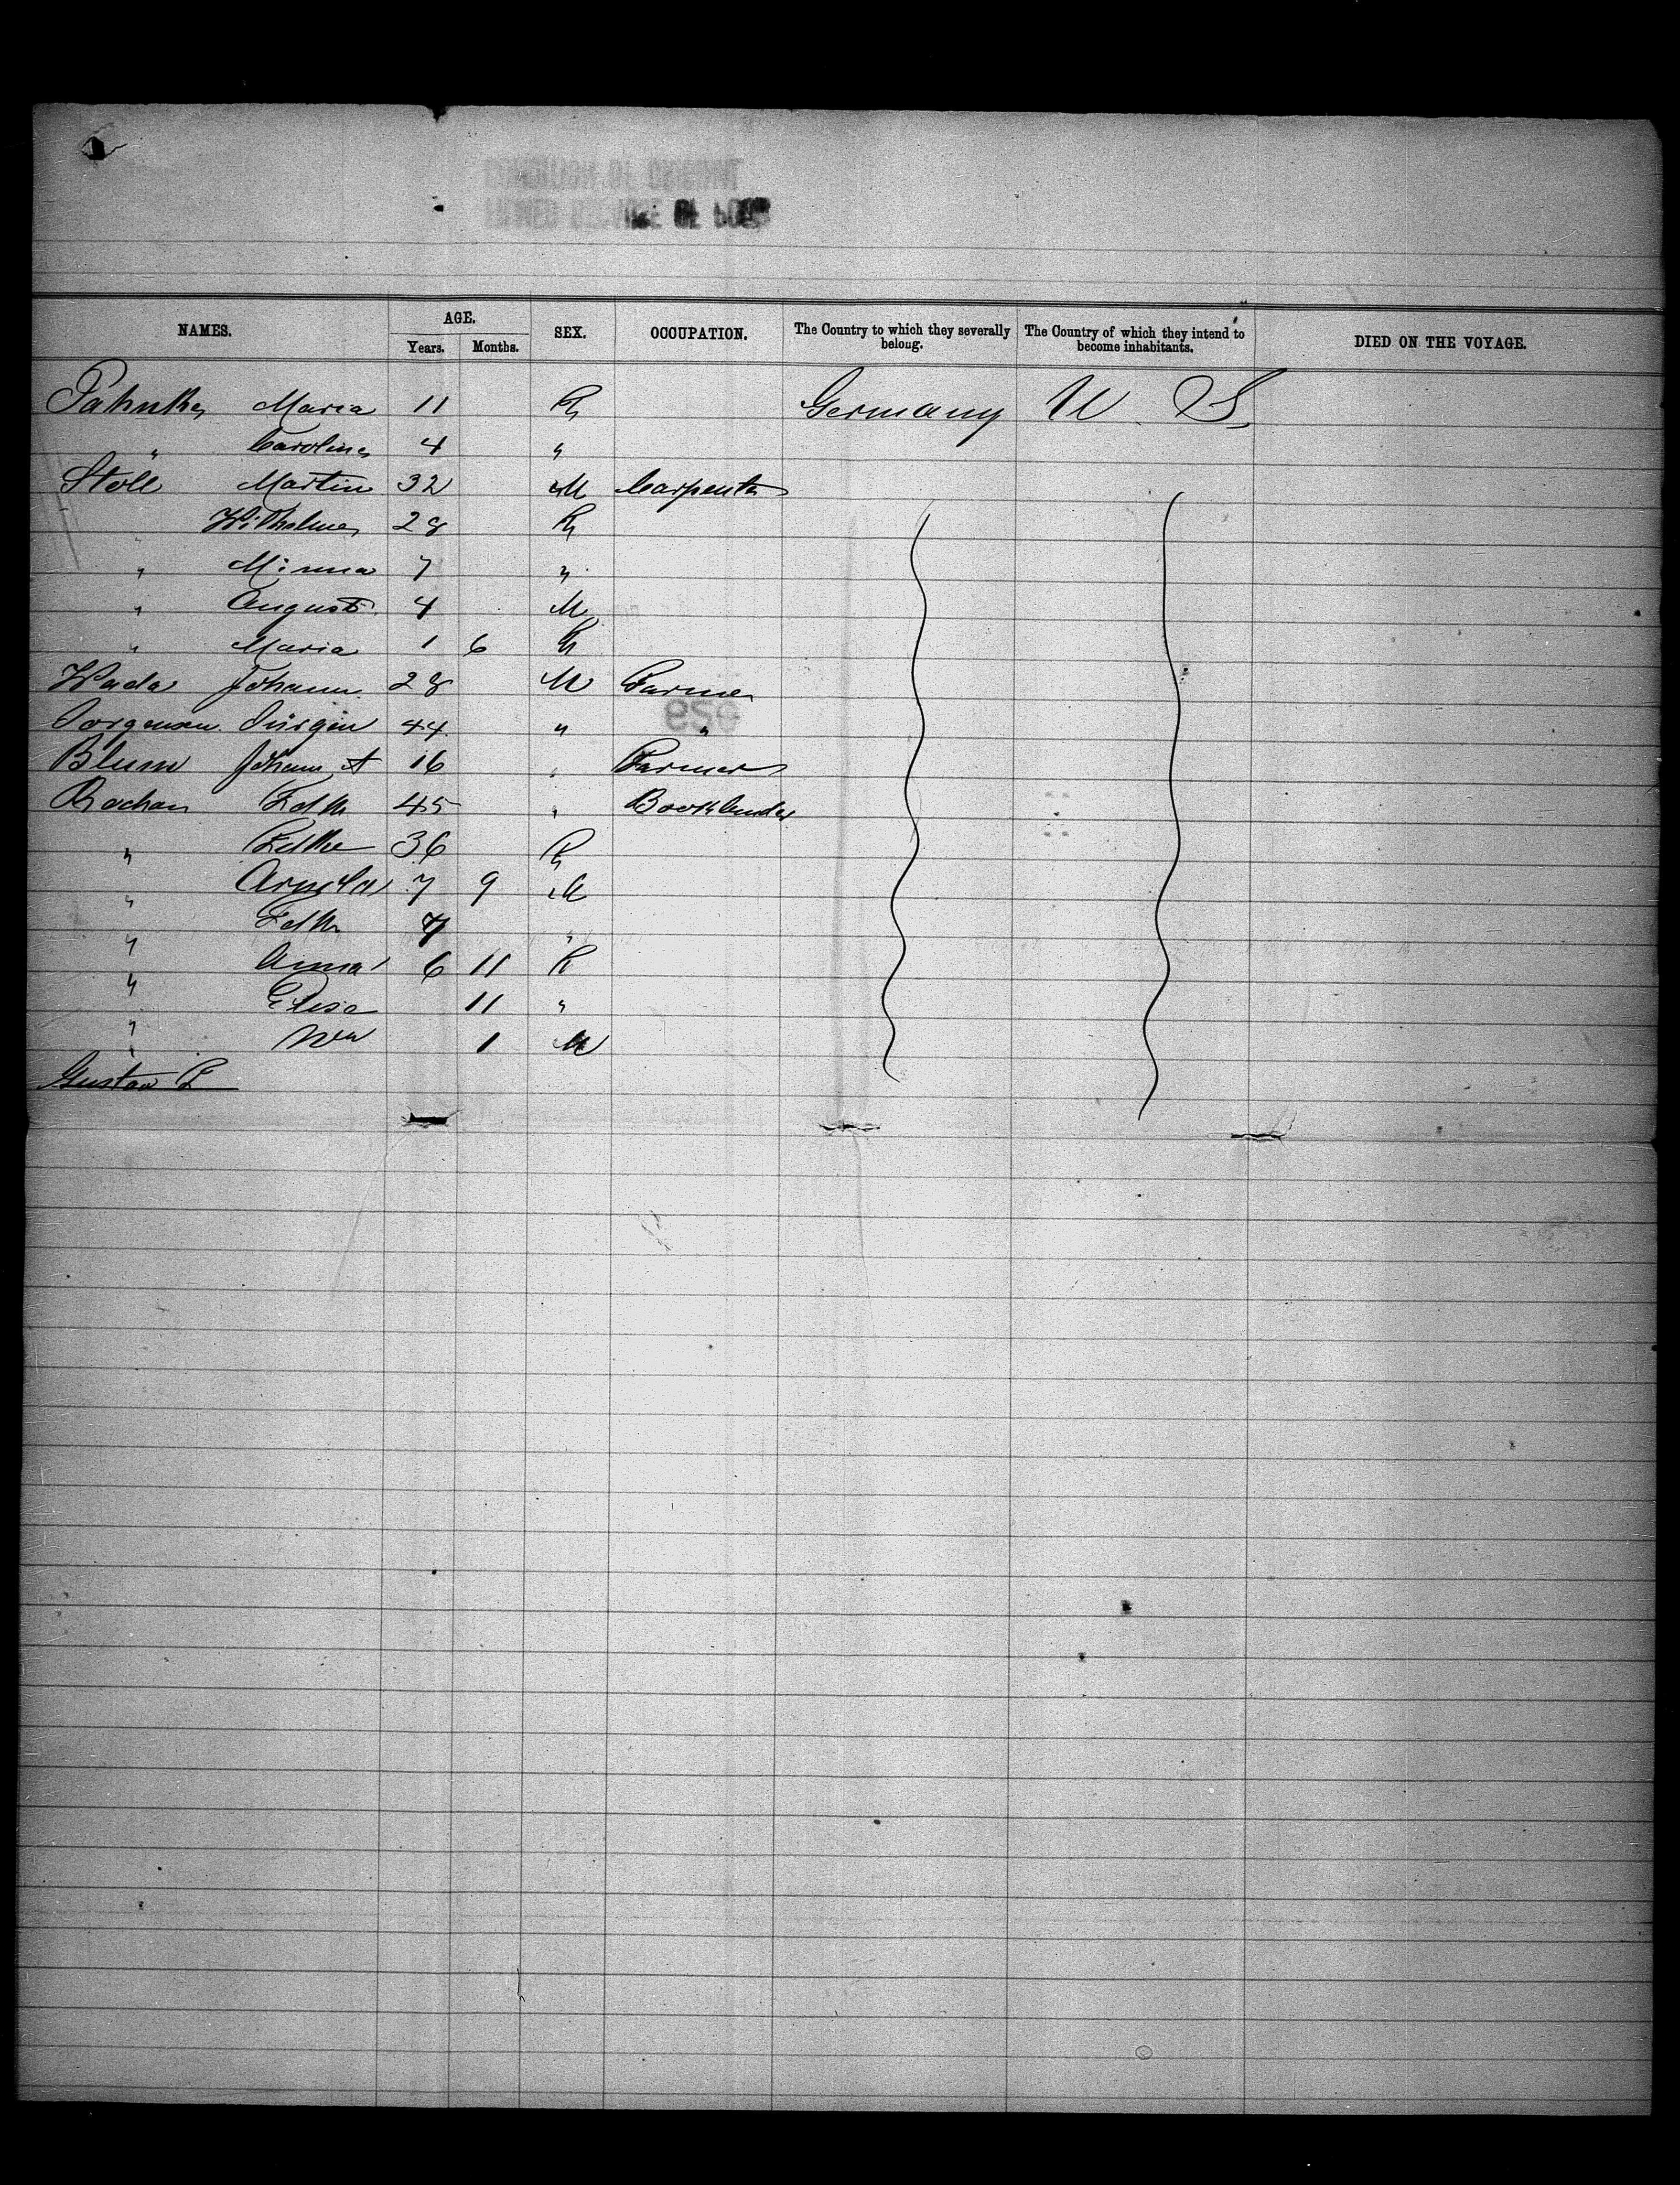 NAMES. AGE. SEX. OCCUPATION. The Country to which they severally belong. The Country of which they intend to become inhabitants. DIED ON THE VOYAGE.
Years. Months.
Maria 11 Germany U. S.
" Carolina 4 "
Stoll Martin 32 M Carpenter
Wilhelmina 28
" Minna 7 "
" August 4 M
" Maria 1 6
Wada Johann 28 M Farmer
Jorgensen Jürgen 44 " "
Blum Johann A 16 " Farmer
45 " Bookbinder
" 36
" Arnold 7 9 M
"
" Anna 6 11
" Elisa 11 "
" Wm 1 M
Gustav